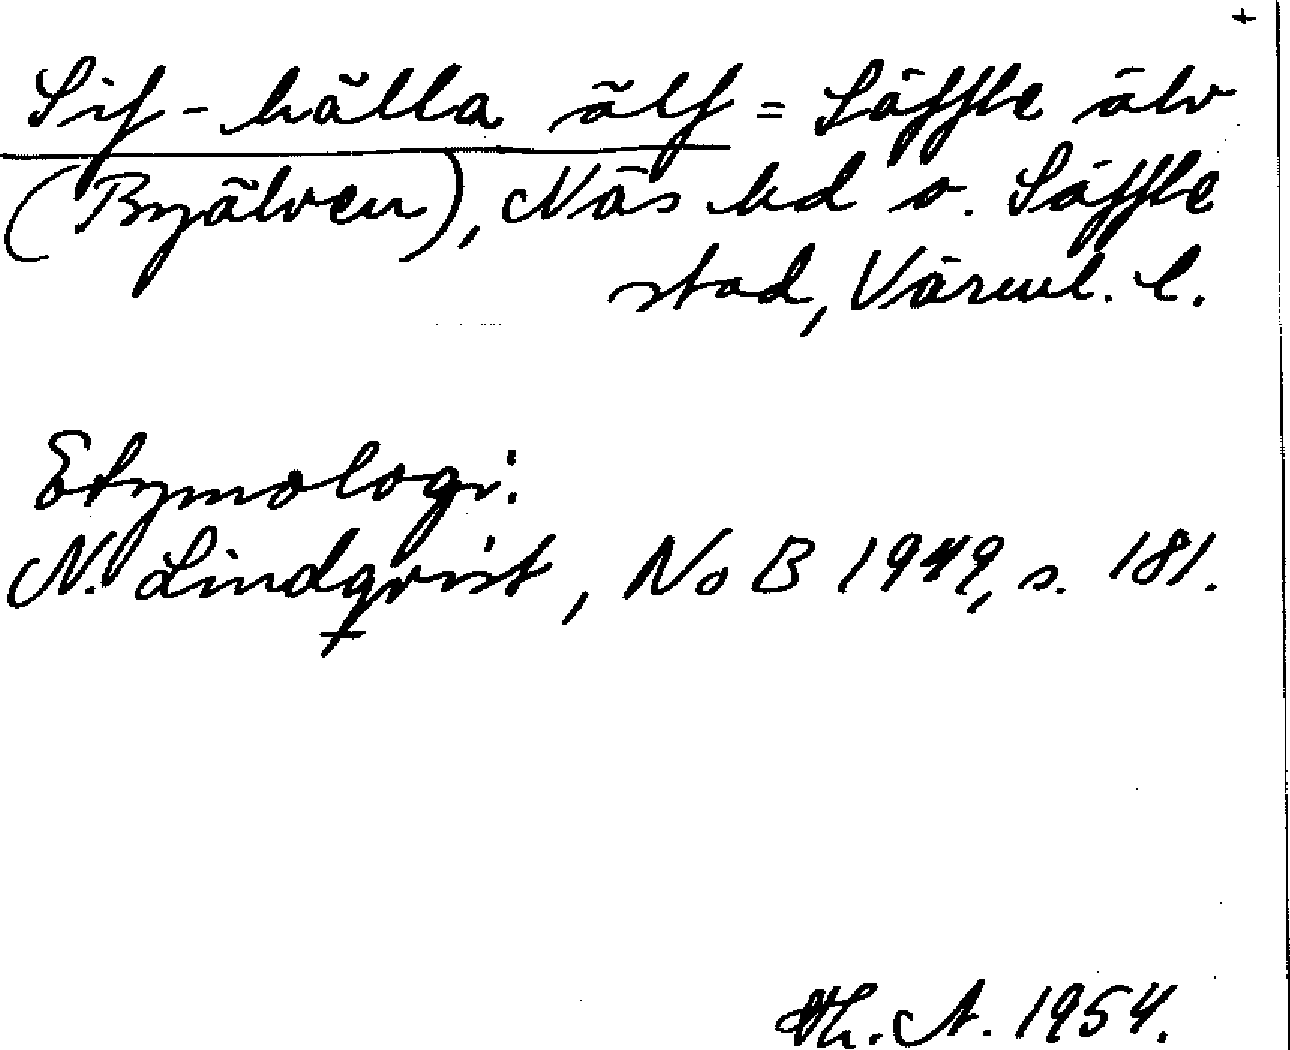 +
Sif-hälla älf = Säffle älv
(Byälven), Näs hd o. Säffle
stad, Värml. l.
Etymologi:
N. Lindqvist, NoB 1949, s. 181.
Th. A. 1954.